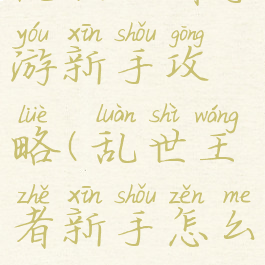 yóu xīn shǒu gōng
游新手攻
lüè luàn shì wáng
略(乱世王
zhě xīn shǒu zěn me
者新手怎么